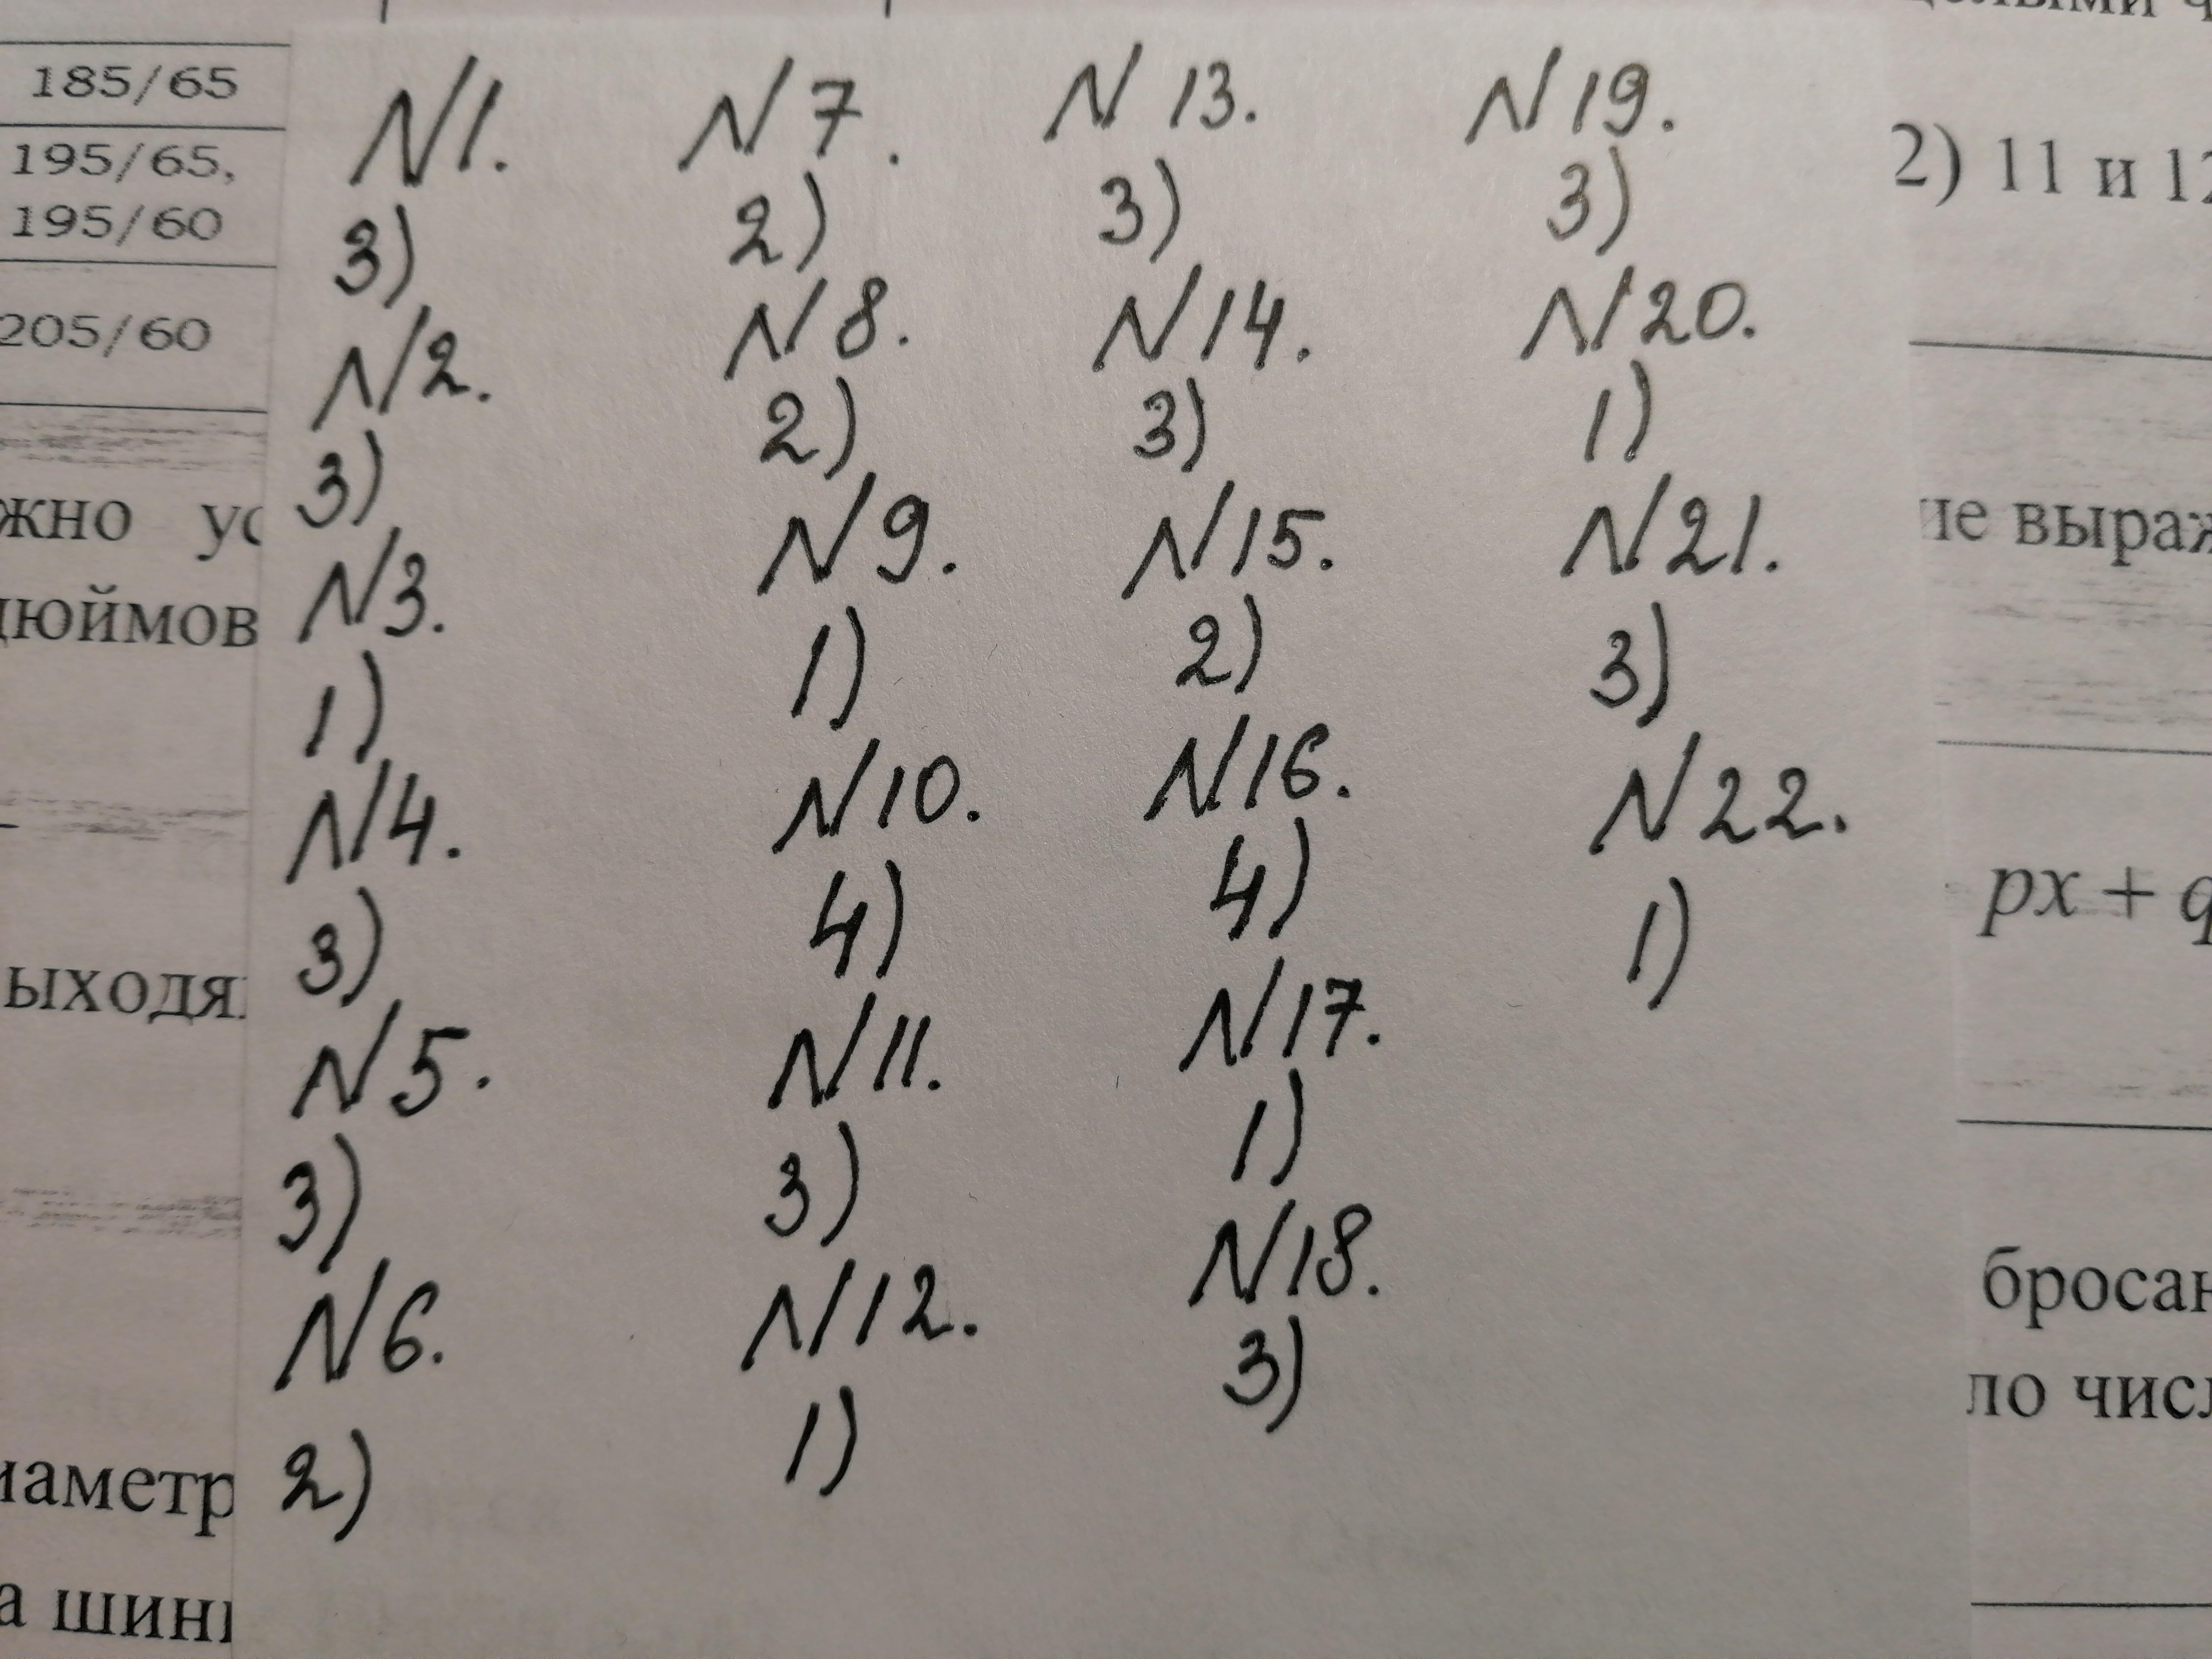 185/65
195/65,
195/60
205/60
жно ус
дюймов
ыходя
иаметр
а шин
N1.
3)
N2.
3)
N3.
1)
N4.
3)
N5.
3)
N6.
2)
N7.
2)
N8.
2)
N9.
1)
N10.
4)
N11.
3)
N12.
1)
N13.
3)
N14.
3)
N15.
2)
N16.
4)
N17.
1)
N18.
3)
N19.
3)
N20.
1)
N21.
3)
N22.
1)
елыми ч
2) 11 и 12
ие выраж
px + q
бросан
ло числ